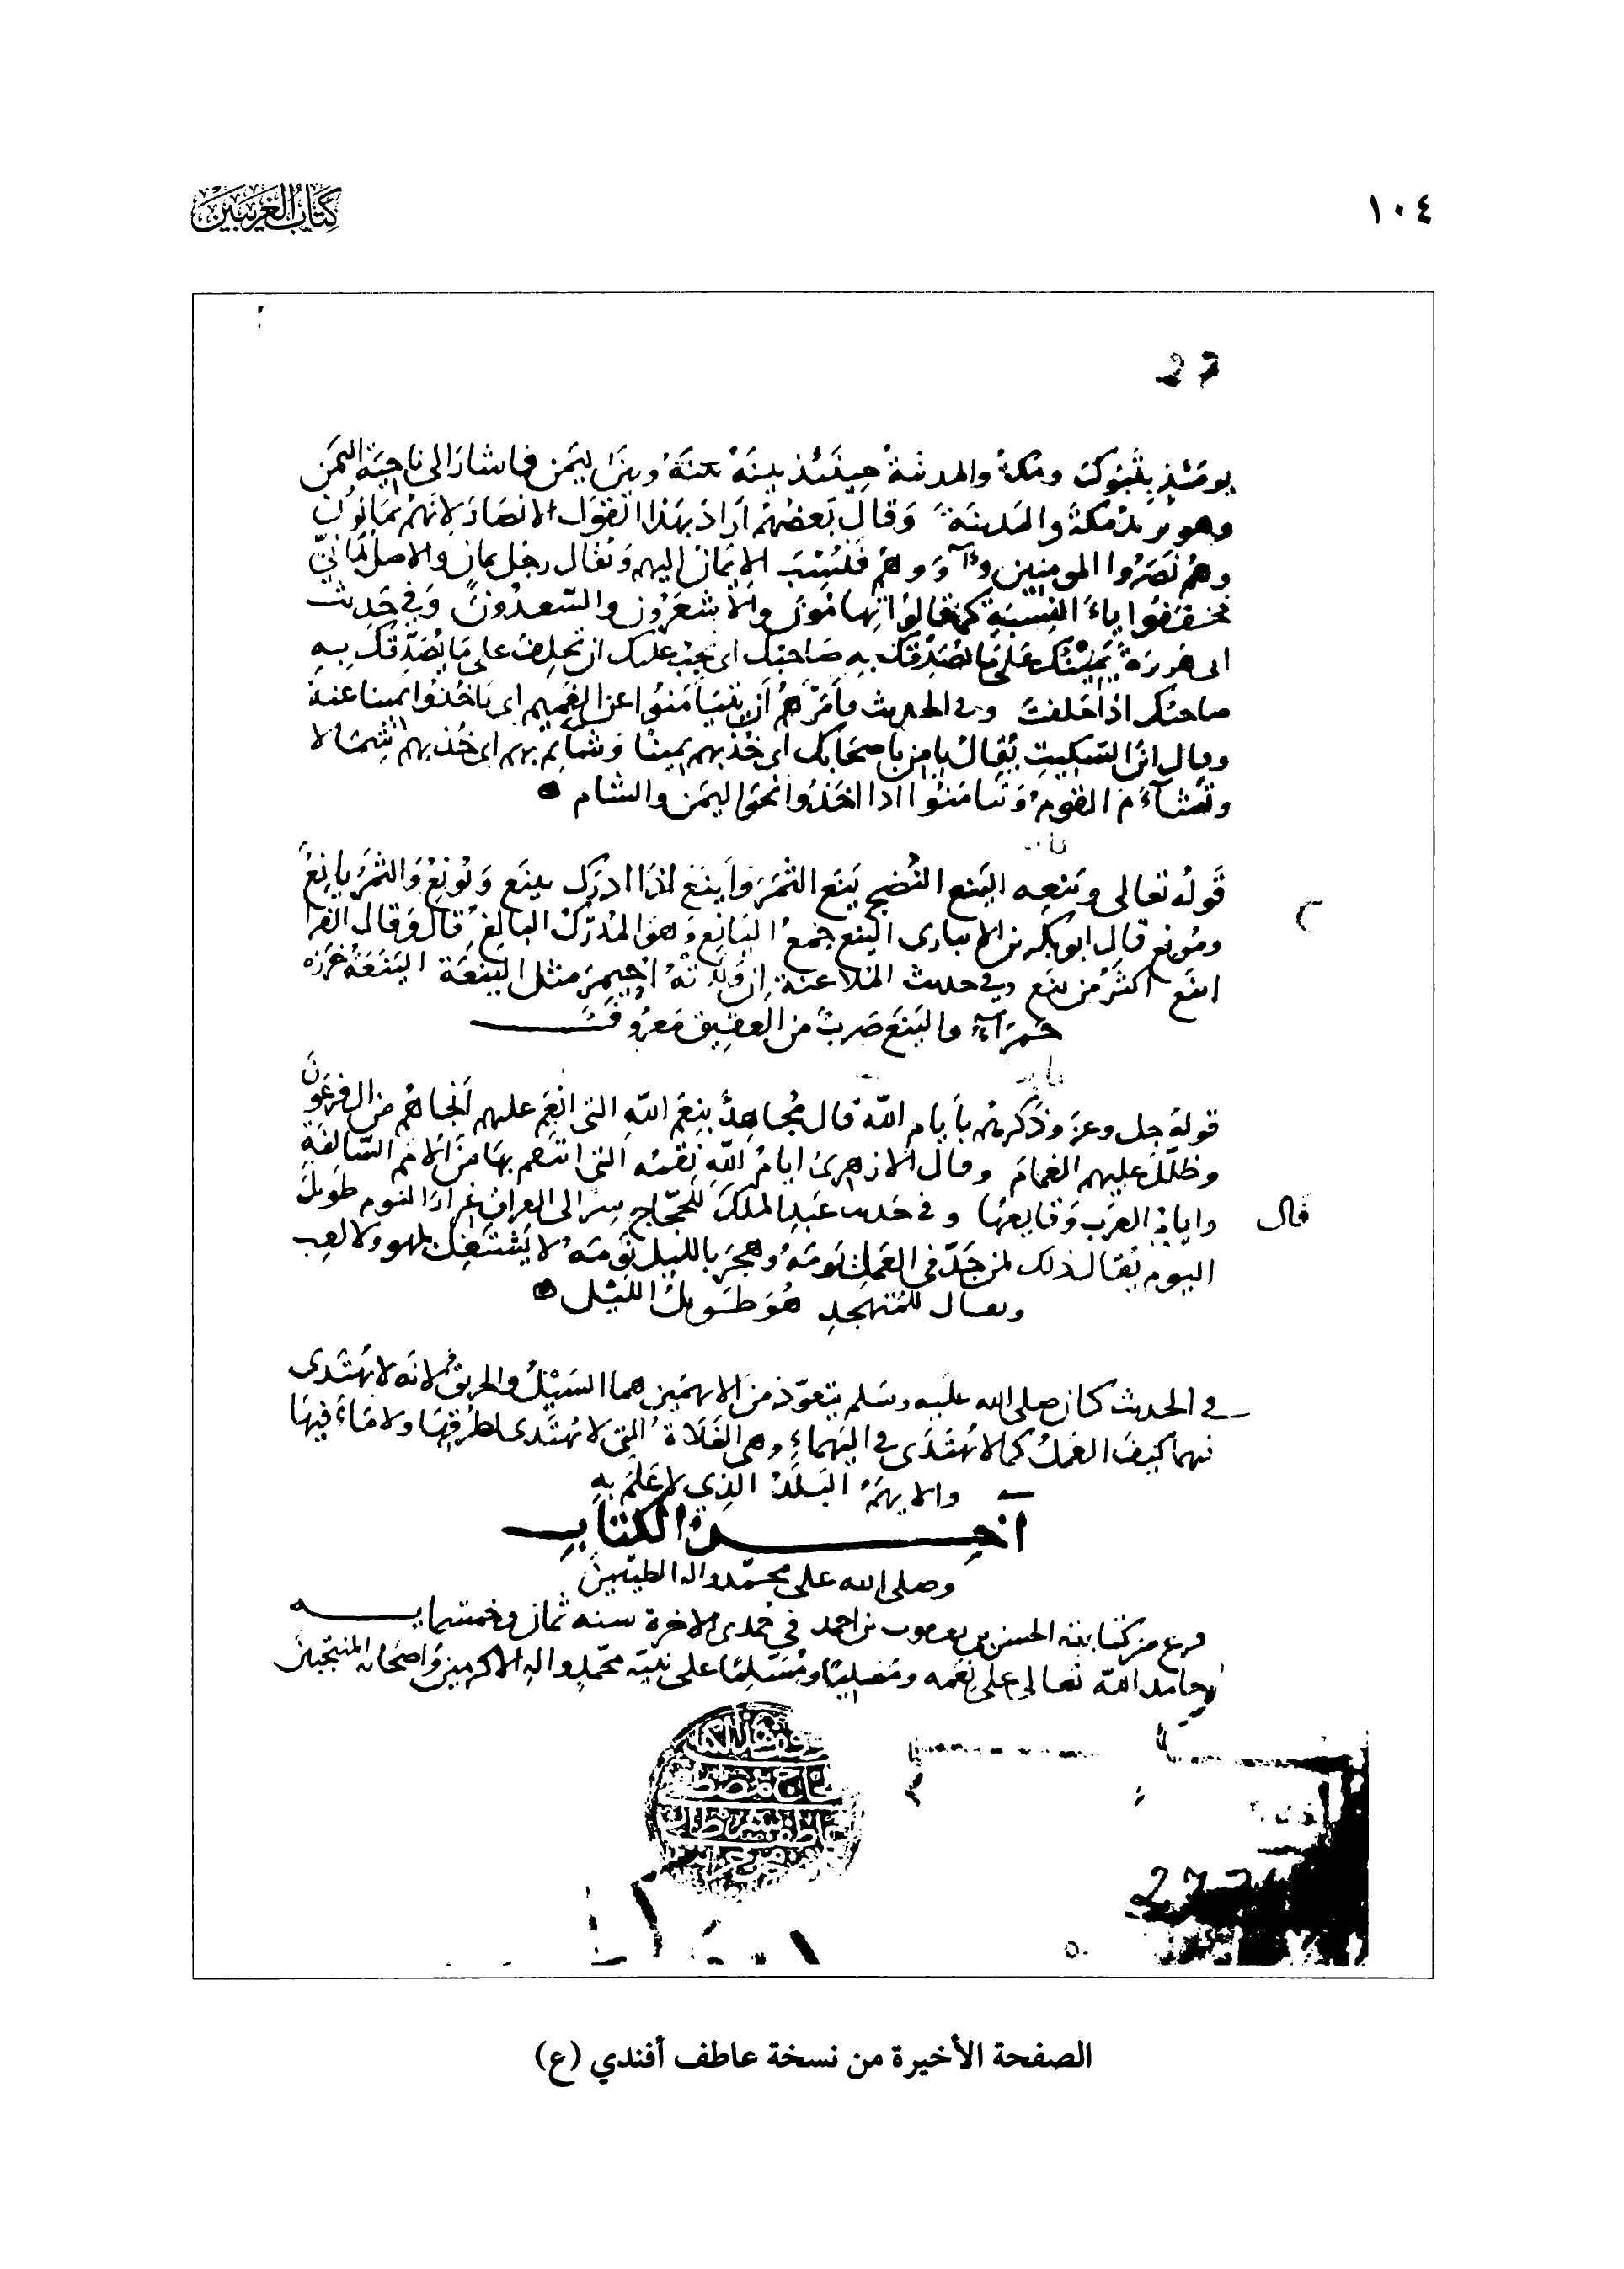 ١٠٤
كتاب الغريبين
يومَئذٍ بتَبوك ومكةُ والمدينةُ حِينَئذٍ بينَهُ وبينَ اليَمن فاشارَ الى ناحِيَة اليمَن
وهو يريدُ مكةَ والمَدينَةَ وَقالَ بَعضهُم اَرادَ بهَذا القَول الانصَارَ لانَهُم يمَانُونَ
وهُم نَصَرُوا المومِنينَ وآوَوهُم فَنُسِبَ الإيمَانُ اليهم وَيُقال رجُل يمانٍ والاصل يمَانيّ
فخففوا ياءَ النِسْبَةِ كما قالوُا تِهامُونَ وَالأشعَرُون والسَّعدُونَ وَفي حَدِيث
ابى هُريرَةَ يَمِينُكَ عَلى مَا يُصَدّقكَ بهِ صَاحبُك اى يجبُ عليك ان تَحلِفَ على مَا يُصَدِّقكَ بِهِ
صاحبُك اذا حَلَفتَ وفى الحديث فأمَرَهُم اَن يَتَيَامَنُوا عن الغَمِيم اى يأخُذوا يمينا عنهُ
وقال ابنُ السّكيتِ يُقالُ يامِن باصحَابك اى خُذ بهم يمينًا وَشائِم بهم اى خُذ بهم شِمَالا
وتَشَاءَمَ القوم وَتيامَنُوا اذا اخَذوُا نحوَ اليَمن والشام
قَولُه تعالى ويَنعِه اليَنع النُضج يَنَعَ الثمَر وَأينَعَ اذا ادرَك يينَع وَيُونِعُ وَالثمَرُ يانِعٌ
ومُونِع قال ابو بكر بن الانبارى الينع جَمعُ اليَانِع وَهوَ المُدرَكُ البالِغُ قال وَقال الفرا
اينَع اكثرُ من يَنَع وفي حديث المُلاعنة إن وَلَدَتهُ اُحَيمِرَ مثل اليَنعَة اليَنَعَةُ خَرَزه
حَمرَاءُ واليَنَع ضَربٌ من العقِيق مَعرُوفٌ
قولهُ جل وعزَ وذَكّرهُم بأيام الله قال مُجاهِدٌ بنِعَم اللهِ التى انعَم عليهم أنجاهُم من ال فرعَونَ
وظلّلَ عليهم الغمامَ وقال الازهرىُ ايامُ اللهِ نِقمُه التى انتقم بهَا منَ الأمَم السّالفةِ
قال
وايامُ العرَب وَقايعُهَا وفي حديث عَبدِ الملك للحَجّاج سِر الى العراق غِرارَ النوم طويلَ
اليوم يُقال ذلك لمن جَدّ في العَمل يَومَهُ وهجَرَ بالليل نَومَهُ لا يَشتَغِلُ بلهو ولا لعِب
ويقال للمُتهَجدِ هُوَ طَويلُ اللَيْل
في الحديث كان صلى الله عليه وسَلم يتعوّذ منَ الايهمَين هما السَيْلُ والحريقُ لانه لا يُهتَدى
فيهما كيفَ العَمَلُ كما لا يُهتَدَى في اليَهماءِ وهى الفَلاةُ التي لا يُهتَدى لطُرقِهَا ولا مَاءَ فيهَا
والايهَمُ البَلَدُ الذِى لا عَلَمَ بِهِ
آخر الكتاب
وصلى الله على محمّد واله الطيّبين
فرغ من كتابته الحسن بن يعقوب بن احمد في جمدى الاخرة سنه ثمان وخمسمايه
حامد الله تعالى على نِعَمه ومُصليًا ومُسَلِمًا على نبيّه محمّدٍ واله الاكرمين وَاصحابه المنتجبين
الصفحة الأخيرة من نسخة عاطف أفندي (ع)